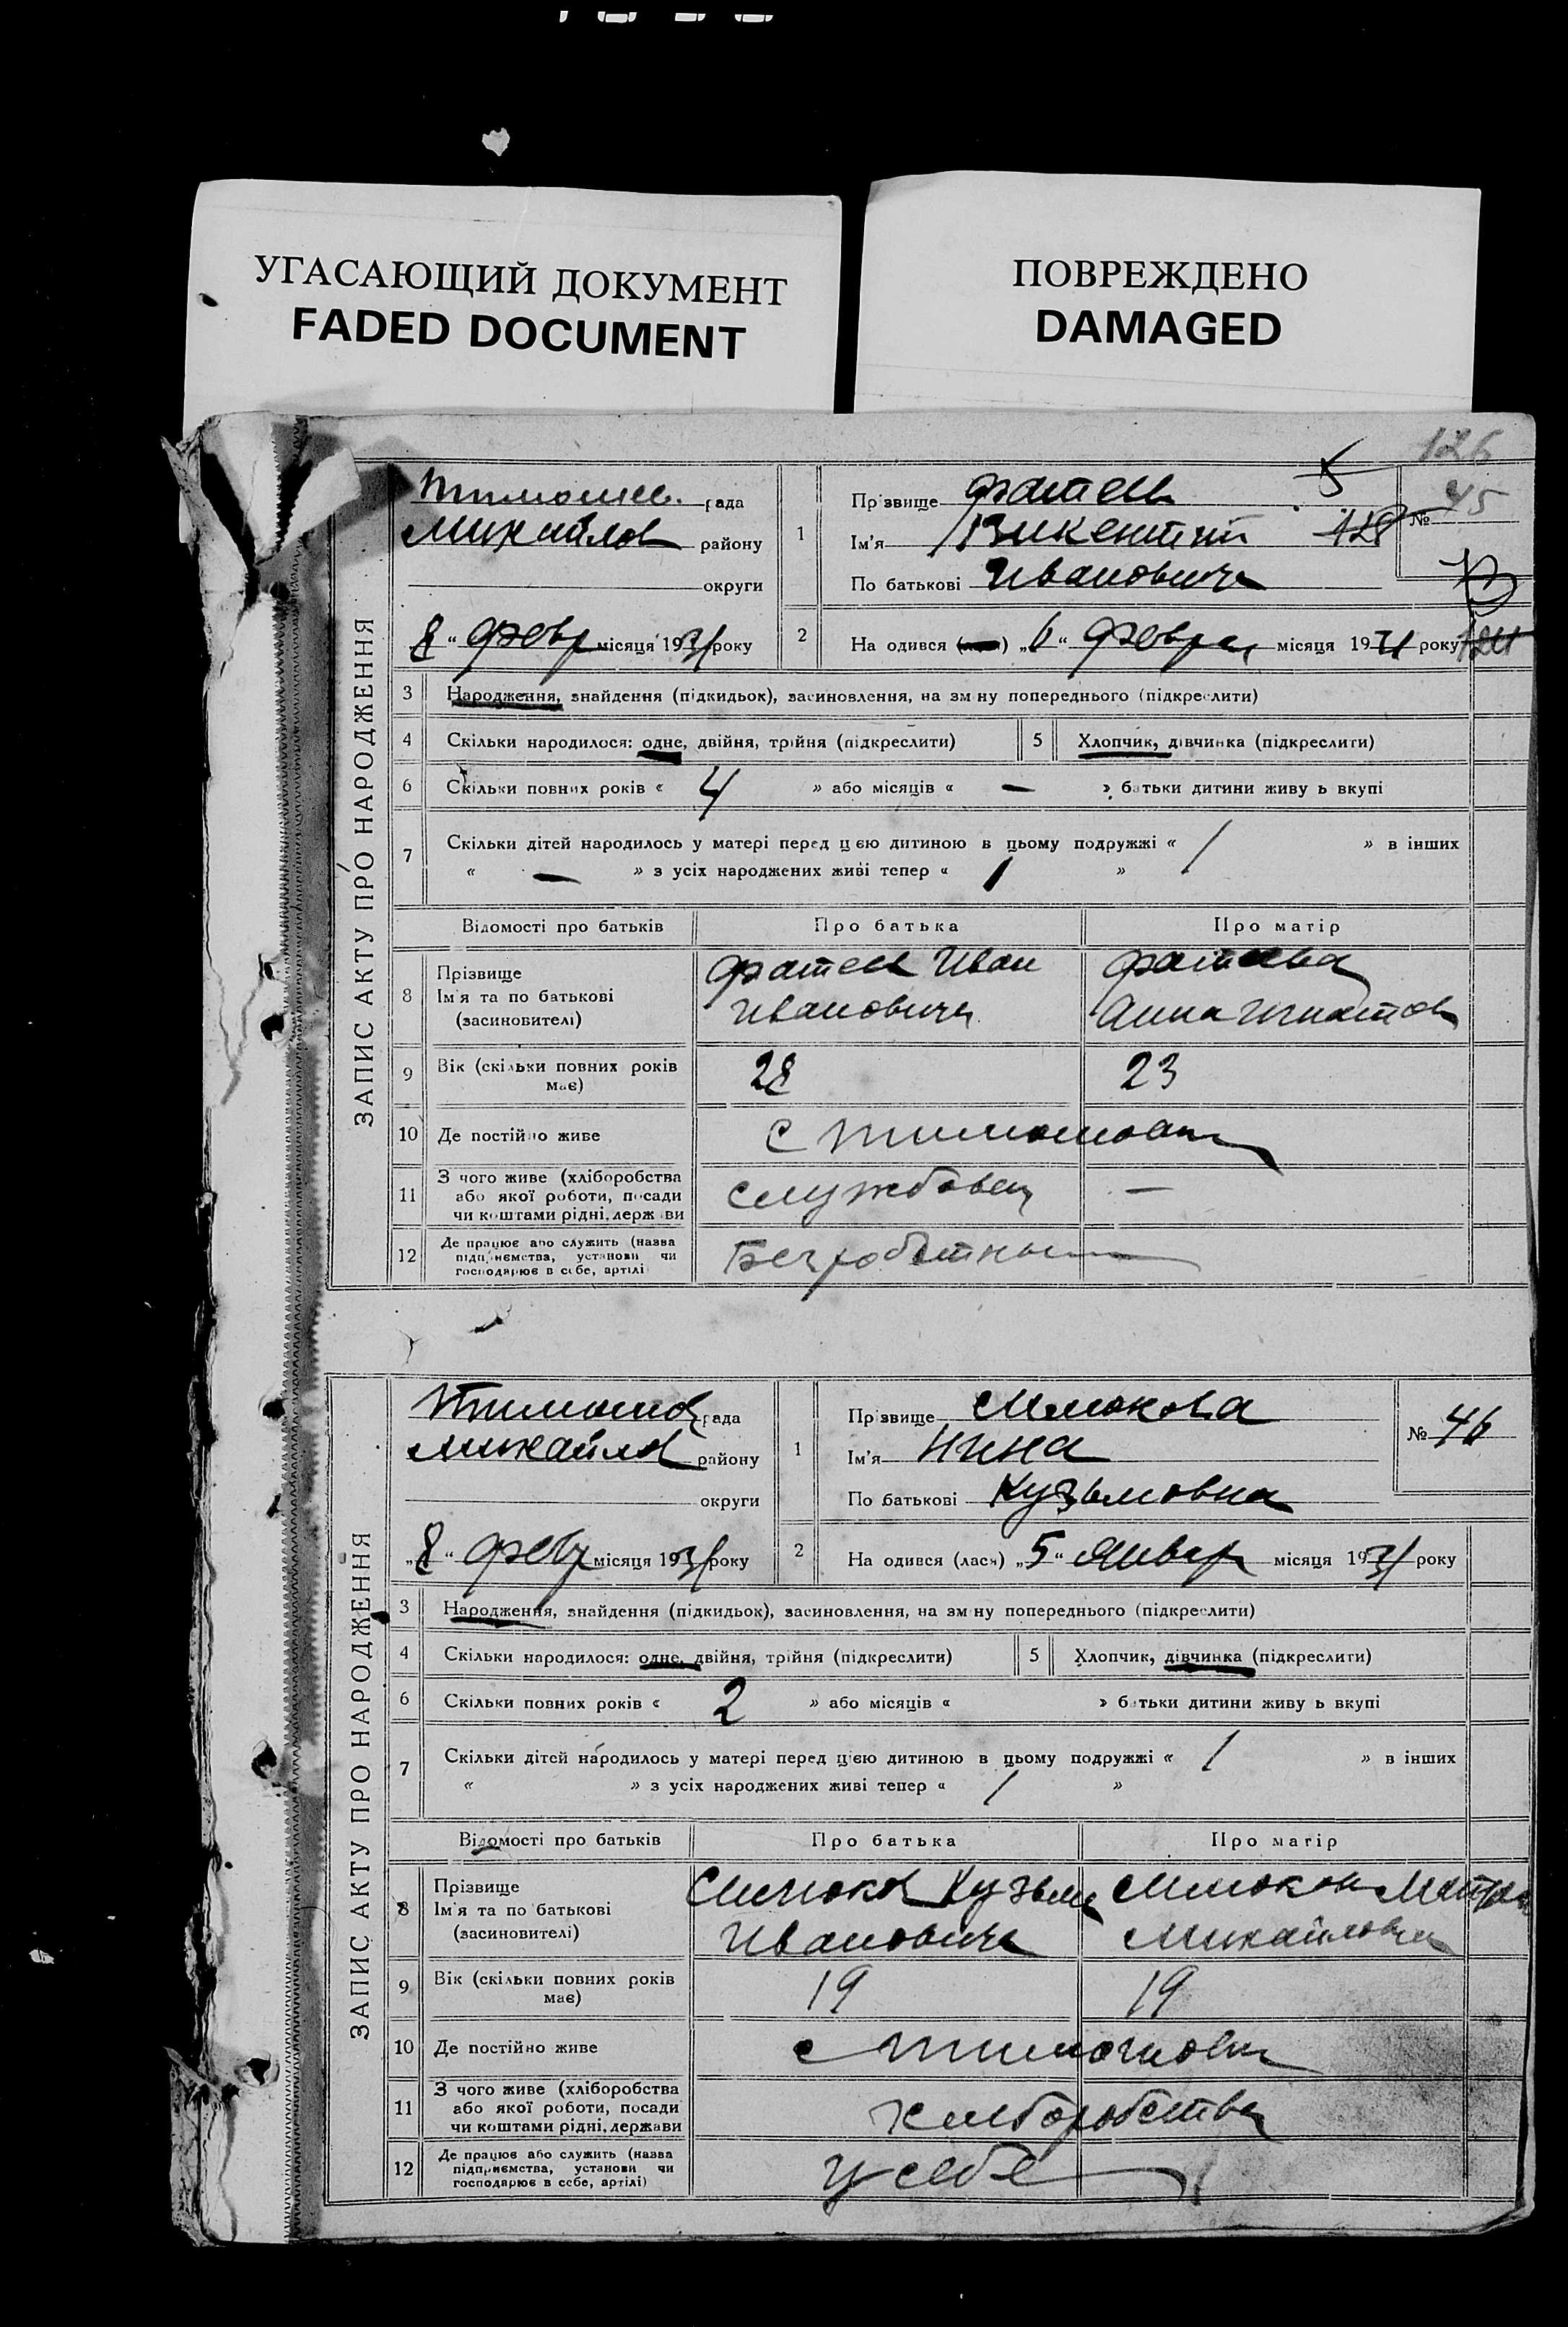 УГАСАЮЩИЙ ДОКУМЕНТ
FADED DOCUMENT
ПОВРЕЖДЕНО
DAMAGED
126
ЗАПИС АКТУ ПРО НАРОДЖЕННЯ
Тимошев. рада
Михайлов району
округи
1 Прізвище Фатеев
Ім'я Викентий
По батькові Иванович
№ 45
8 " Февр місяця 1931 року
2 На одився „6 " Февра місяця 1931 року
3 Народження, знайдення (підкидьок), засиновлення, на зм ну попереднього (підкреслити)
4 Скільки народилося: одне, двійня, трійня (підкреслити) 5 Хлопчик, дівчинка (підкреслити)
6 Скільки повних років « 4 » або місяців « — » батьки дитини живу ь вкупі
7 Скільки дітей народилось у матері перед цією дитиною в цьому подружжі « 1 » в інших
« — » з усіх народжених живі тепер « 1 »
Відомості про батьків Про батька Про матір
8 Прізвище
Ім'я та по батькові
(засиновителі)
Фатеев Иван
Иванович
Фатеева
Анна Игнатов
9 Вік (скільки повних років має) 28 23
10 Де постійно живе с Тимошовки
11 З чого живе (хліборобства
або якої роботи, посади
чи коштами рідні, держави
службовец —
12 Де працює або служить (назва
підприємства, установи чи
господарює в себе, артілі
Безработный
ЗАПИС АКТУ ПРО НАРОДЖЕННЯ
Тимошов рада
Михайлов району
округи
1 Прізвище Смокова
Ім'я Нина
По батькові Кузьмовна
№ 46
„8 " Февр місяця 1931 року
2 На одився (лася) „5 " Январ місяця 1931 року
3 Народження, знайдення (підкидьок), засиновлення, на зм ну попереднього (підкреслити)
4 Скільки народилося: одне, двійня, трійня (підкреслити) 5 Хлопчик, дівчинка (підкреслити)
6 Скільки повних років « 2 » або місяців « » батьки дитини живу ь вкупі
7 Скільки дітей народилось у матері перед цією дитиною в цьому подружжі « 1 » в інших
« » з усіх народжених живі тепер « 1 »
Відомості про батьків Про батька Про матір
8 Прізвище
Ім'я та по батькові
(засиновителі)
Кузьма
Иванович
Михайловна
9 Вік (скільки повних років має) 19 19
10 Де постійно живе с Тимошовки
11 З чого живе (хліборобства
або якої роботи, посади
чи коштами рідні, держави
хлеборобства
12 Де працює або служить (назва
підприємства, установи чи
господарює в себе, артілі)
у себе